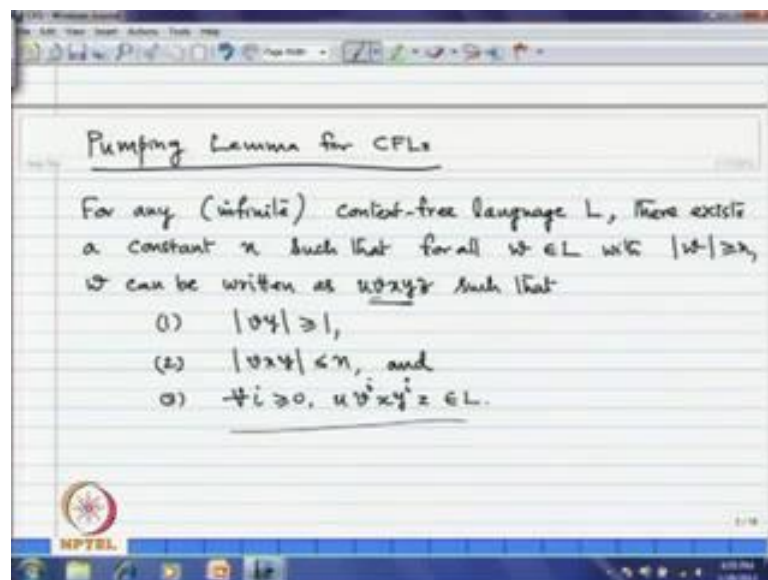 Pumping Lemma for CFLs
For any (infinite) context-free language L, there exists
a constant n such that for all w ∈ L with |w| ≥ n,
w can be written as uvxyz such that
(1) |vy| ≥ 1,
(2) |vxy| ≤ n, and
(3) ∀i ≥ 0, uvⁱxyⁱz ∈ L.
NPTEL